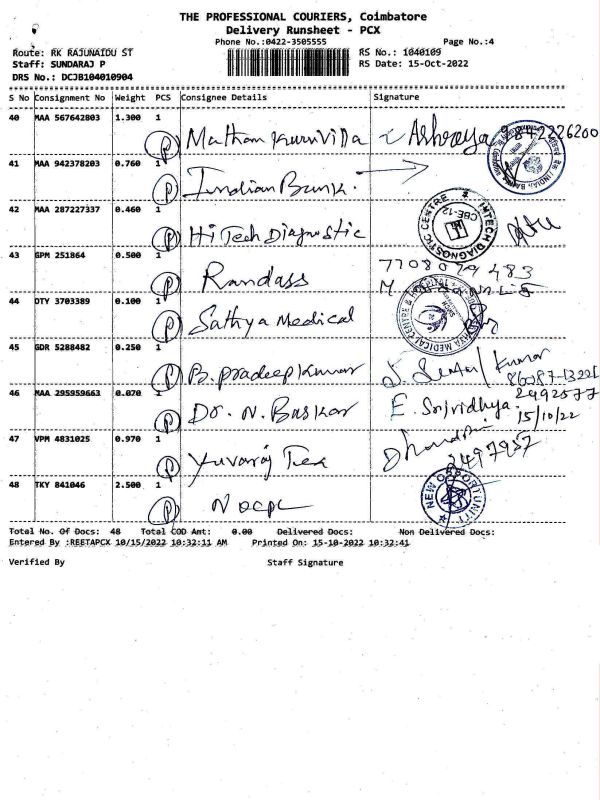 THE PROFESSIONAL COURIERS, Coimbatore
Delivery Runsheet - PCX
Phone No.:0422-3505555 Page No.:4
Route: RK RAJUNAIDU ST RS No.: 1040109
Staff: SUNDARAJ P RS Date: 15-Oct-2022
DRS No.: DCJB104010904
S No Consignment No Weight PCS Consignee Details Signature
40 MAA 567642803 1.300 1
P Mathan Kuruvilla Ashraya 9842226200
41 MAA 942378203 0.760 1
P Indian Bank.
42 MAA 287227337 0.460 1
P HiTech Diagnostic
IMTECH DIAGNOSTIC CENTRE CBE-12
43 GPM 251864 0.500 1
P Ramdass 7708079483
44 DTY 3703389 0.100 1
P Sathya Medical
SATHYA MEDICAL CENTRE & HOSPITAL
45 GDR 5288482 0.250 1
P B. Pradeep Kumar Kumar
46 MAA 295959663 0.070 1
P Dr. N. Baskar E. Srividhya. 2492577
15/10/22
47 VPM 4831025 0.970 1
P Yuvaraj Tex 2497957
48 TKY 841046 2.500 1
P Nocpl
NEW OPPORTUNITY
Total No. Of Docs: 48 Total COD Amt: 0.00 Delivered Docs: Non Delivered Docs:
Entered By :REETAPCX 10/15/2022 10:32:11 AM Printed On: 15-10-2022 10:32:41
Verified By Staff Signature